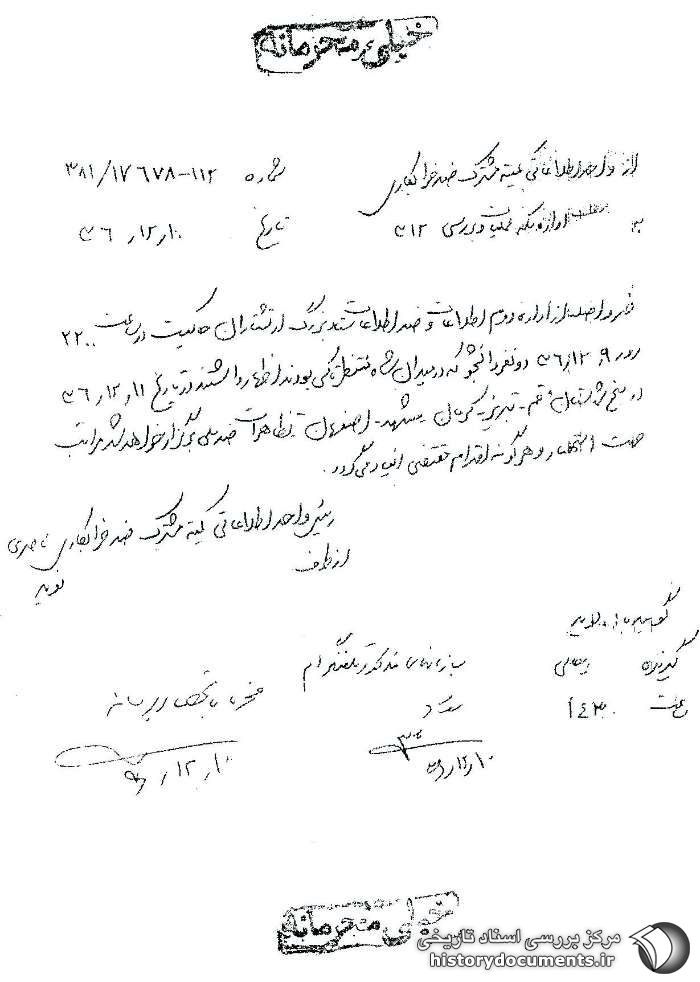 خیلی محرمانه
از واحد اطلاعاتی کمیته مشترک ضد خرابکاری شماره ۳۸۱/۱۷۶۷۸-۱۱۲
به اداره یکم عملیات و بررسی ۳۱۲ تاریخ ۱۰/۱۲/۳۶
خبر واصله از اداره دوم اطلاعات و ضد اطلاعات ستاد بزرگ ارتشتاران حاکیست در ساعت ۲۲۰۰
روز ۹/۱۲/۳۶ دو نفر دانشجو که در میدان شاه منتظر تاکسی بودند اظهار داشتند در تاریخ ۱۱/۱۲/۳۶
در پنج شهرستان قم - تبریز - کرمان - مشهد - اصفهان تظاهرات ضد ملی برگزار خواهد شد مراتب
جهت استحضار و هر گونه اقدام مقتضی اعلام می‌گردد.
رئیس واحد اطلاعاتی کمیته مشترک ضد خرابکاری ناصری
از طرف نوید
گوینده
گیرنده
ساعت ۱۴۳۰
سازمانهای مذکور تلگرام
شد
۱۰/۱۲/۳۶
۱۰/۱۲/۳۶
خیلی محرمانه
مرکز بررسی اسناد تاریخی
historydocuments.ir